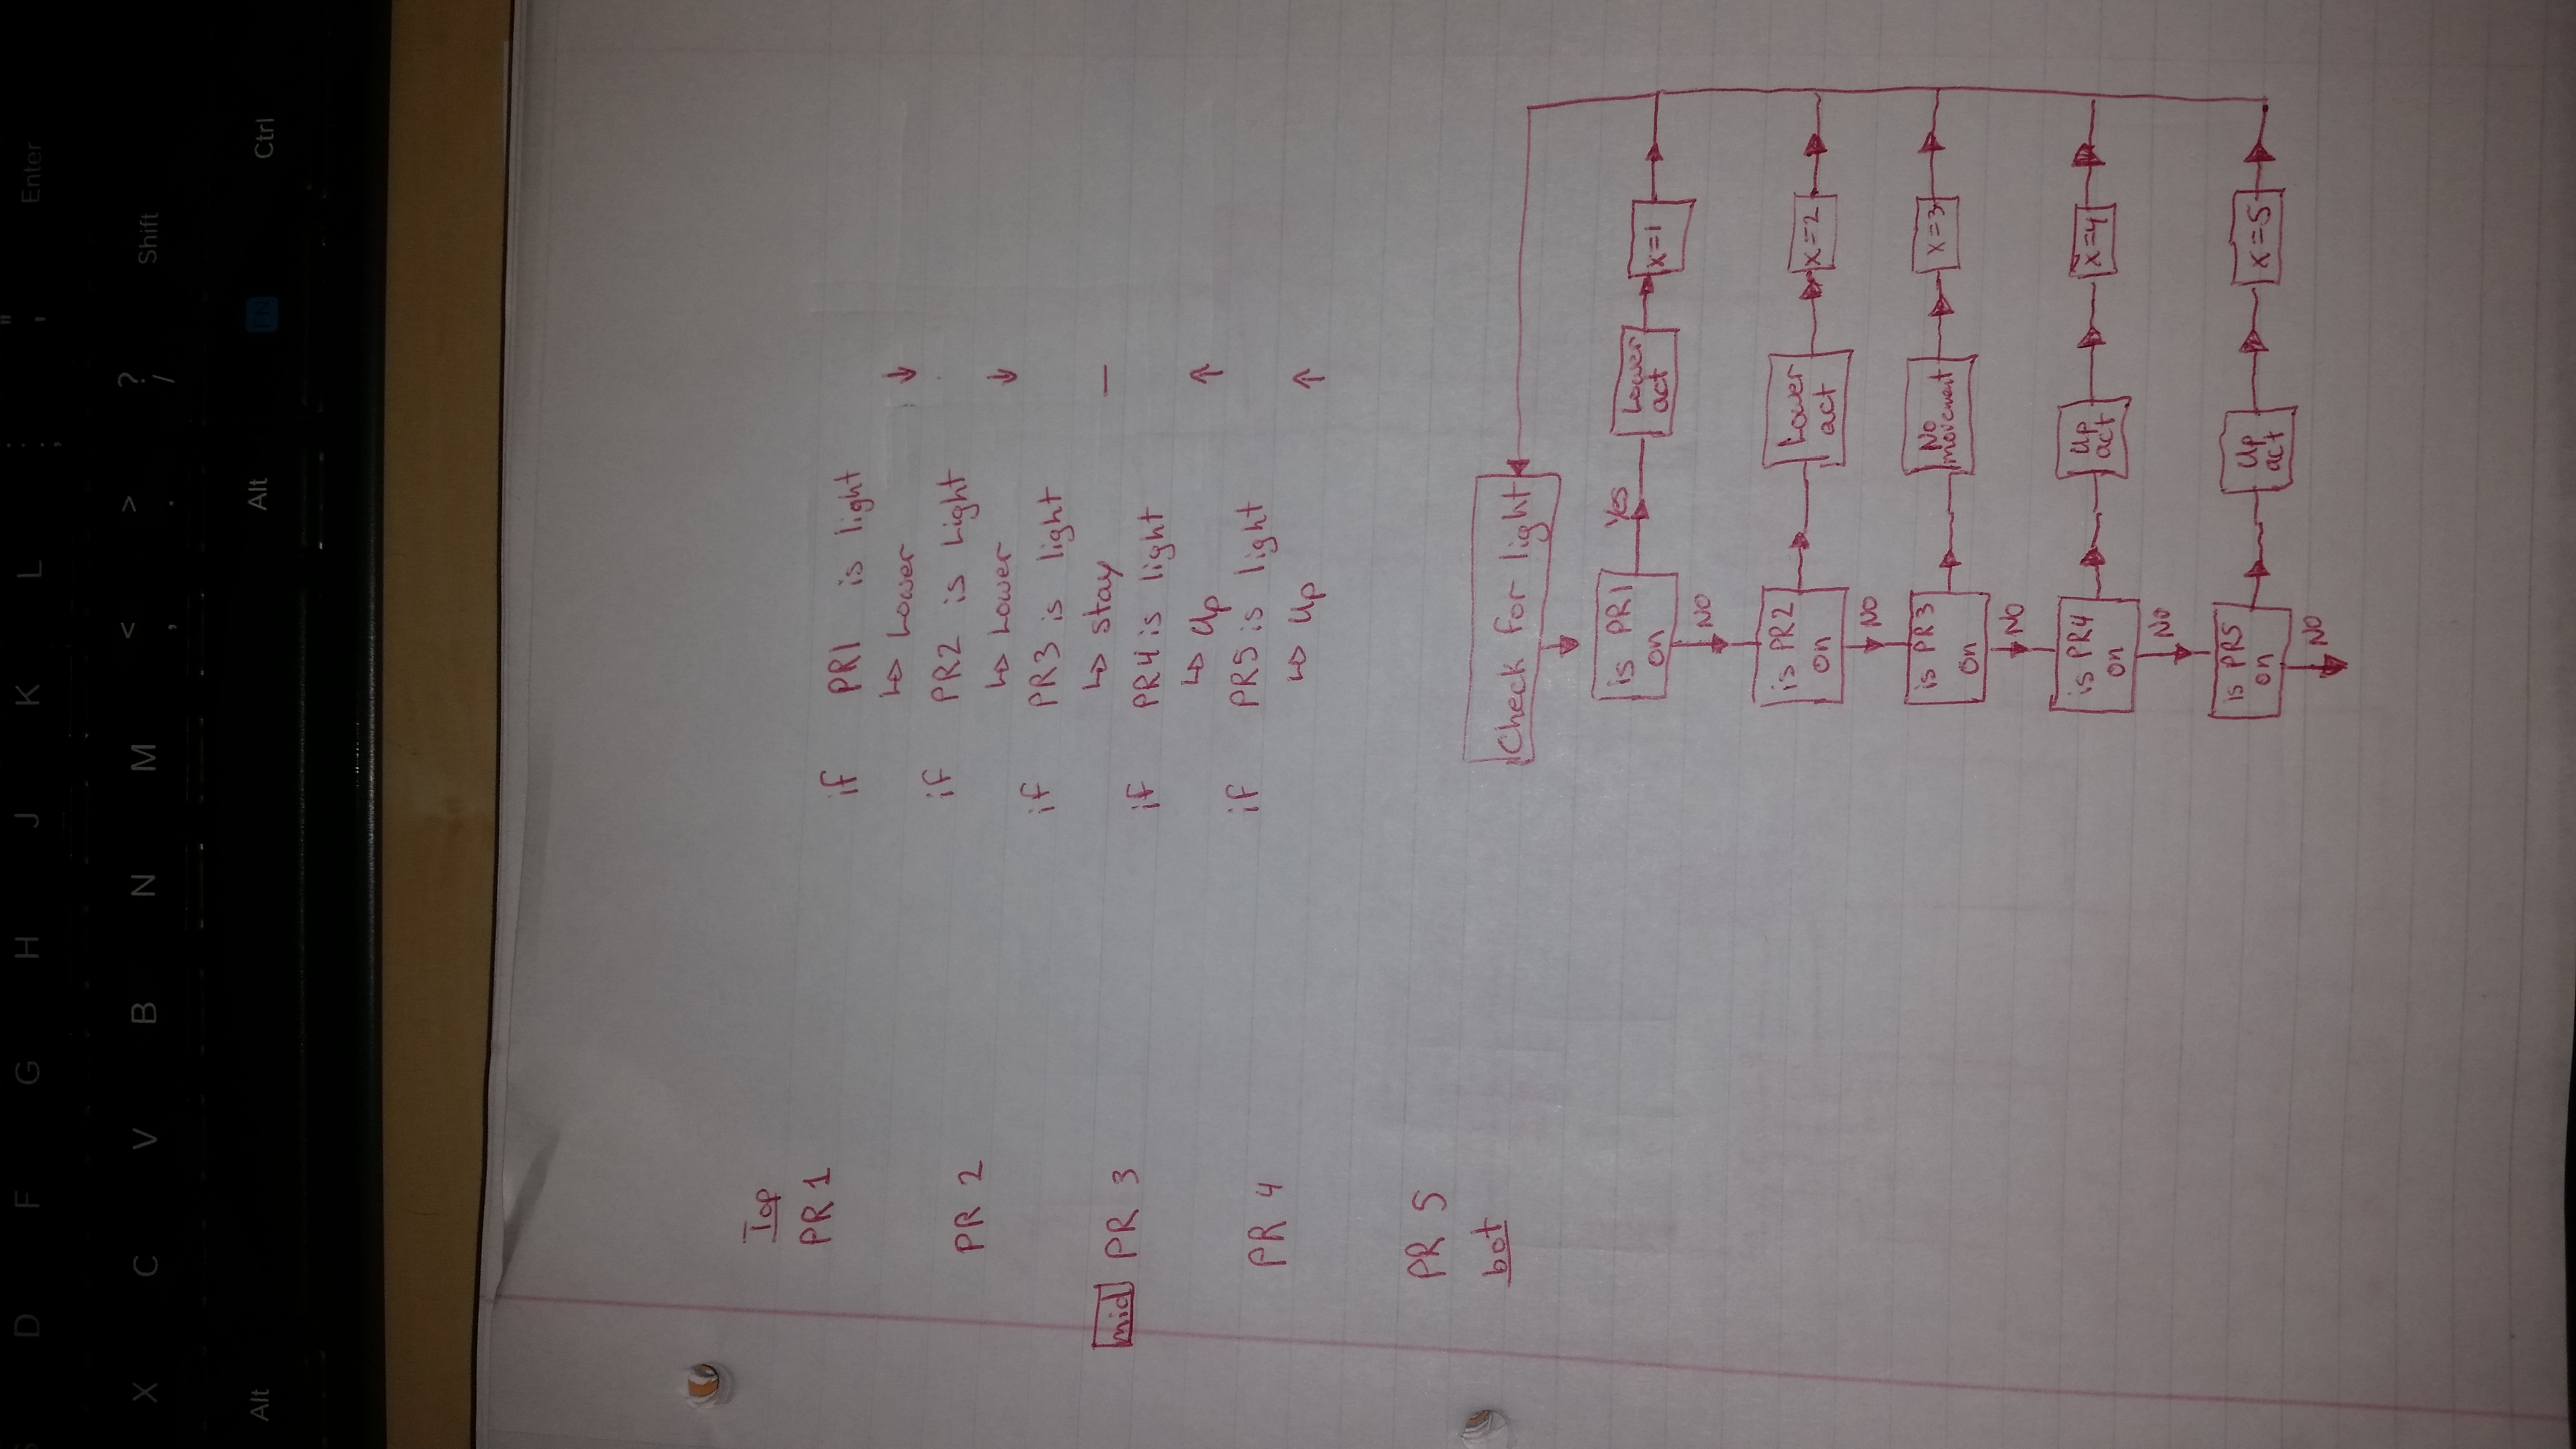 S D F G H J K L ; : ' " Enter
X C V B N M < , > . ? / Shift
Alt Alt FN Ctrl
Top
PR 1
PR 2
mid PR 3
PR 4
PR 5
bot
if PR1 is light
↳ Lower ↓
if PR2 is Light
↳ Lower ↓
if PR3 is light
↳ stay —
if PR4 is light
↳ Up ↑
if PR5 is light
↳ Up ↑
Check for light
is PR1 on
Yes
Lower act
x=1
NO
is PR2 on
Lower act
x=2
NO
is PR3 on
No movement
x=3
NO
is PR4 on
Up act
x=4
NO
is PR5 on
Up act
x=5
NO